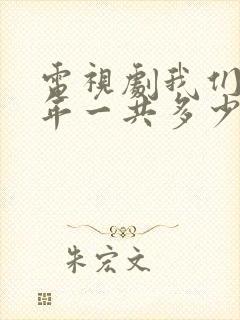 電視劇我们
年一共多少
朱宏文